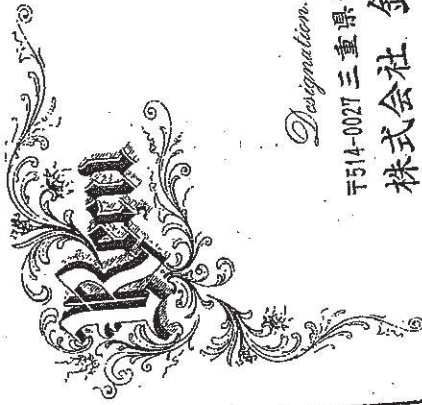 Rum
Designation.
〒514-0027 三重県
株式会社